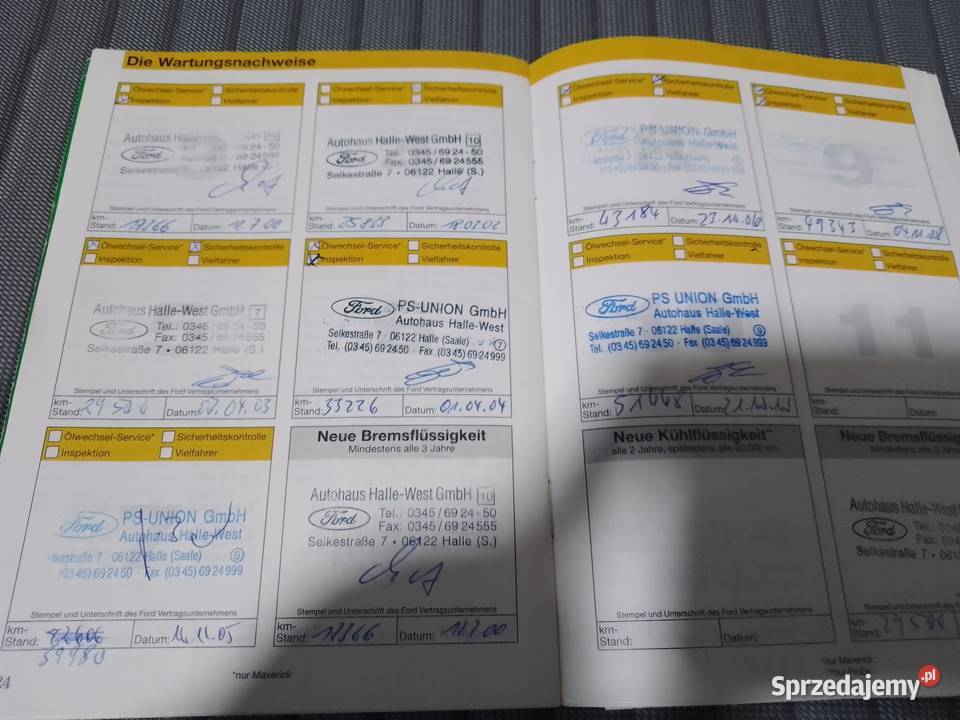 Die Wartungsnachweise
Ölwechsel-Service* Sicherheitskontrolle
Inspektion Vielfahrer
Autohaus Halle-
Ford
Selkestraße 7 • 06122 Halle
Stempel und Unterschrift des Ford Vertragsunternehmens
km-
Stand: Datum:
Ölwechsel-Service* Sicherheitskontrolle
Inspektion Vielfahrer
Autohaus Halle-West GmbH 10
Ford Tel.: 0345/69 24-50
Fax: 0345/69 24555
Selkestraße 7 • 06122 Halle (S.)
Stempel und Unterschrift des Ford Vertragsunternehmens
km-
Stand: 25833 Datum: 18.02.02
Ölwechsel-Service* Sicherheitskontrolle
Inspektion Vielfahrer
Autohaus Halle-West GmbH 7
Ford Tel.: 0345/69 24-50
Fax: 0345/69 24555
Selkestraße 7 • 06122 Halle (S.)
Stempel und Unterschrift des Ford Vertragsunternehmens
km-
Stand: 29500 Datum: .04.03
Ölwechsel-Service* Sicherheitskontrolle
Inspektion Vielfahrer
Ford PS-UNION GmbH
Autohaus Halle-West
Selkestraße 7 · 06122 Halle (Saale) 7
Tel. (0345) 692450 · Fax (0345) 6924999
Stempel und Unterschrift des Ford Vertragsunternehmens
km-
Stand: 33226 Datum: 01.04.04
Ölwechsel-Service* Sicherheitskontrolle
Inspektion Vielfahrer
Ford PS-UNION GmbH
Autohaus Halle-West
06122 Halle (Saale) 9
(0345) 692450 · Fax (0345) 6924999
Stempel und Unterschrift des Ford Vertragsunternehmens
km-
Stand: Datum: 14.11.05
39980
Neue Bremsflüssigkeit
Mindestens alle 3 Jahre
Autohaus Halle-West GmbH 10
Ford Tel.: 0345/69 24-50
Fax: 0345/69 24555
Selkestraße 7 • 06122 Halle (S.)
Stempel und Unterschrift des Ford Vertragsunternehmens
km-
Stand: 17366 Datum: 11.7.00
24
*nur Maverick
Ölwechsel-Service* Sicherheitskontrolle
Inspektion Vielfahrer
Ford PS-UNION GmbH
Autohaus Halle-West
Stempel und Unterschrift des Ford Vertragsunternehmens
km-
Stand: 43184 Datum: 23.11.06
Ölwechsel-Service* Sicherheitskontrolle
Inspektion Vielfahrer
9
km-
Stand: 49343 Datum:
Ölwechsel-Service* Sicherheitskontrolle
Inspektion Vielfahrer
Ford PS UNION GmbH
Autohaus Halle-West
Selkestraße 7 · 06122 Halle (Saale) 9
Tel. (0345) 692450 · Fax (0345) 6924999
Stempel und Unterschrift des Ford Vertragsunternehmens
km-
Stand: Datum:
Ölwechsel-Service* Sicherheitskontrolle
Inspektion Vielfahrer
11
km-
Stand: Datum:
Neue Kühlflüssigkeit**
alle 2 Jahre, spätestens alle 60.000 km
Stempel und Unterschrift des Ford Vertragsunternehmens
km-
Stand: Datum:
Neue Bremsflüssig
Mindestens alle 3 Jahre
Autohaus Halle-West
Ford
Selkestraße 7 • 06122
km-
Stand: 29500
*nur Maverick
Sprzedajemy.pl